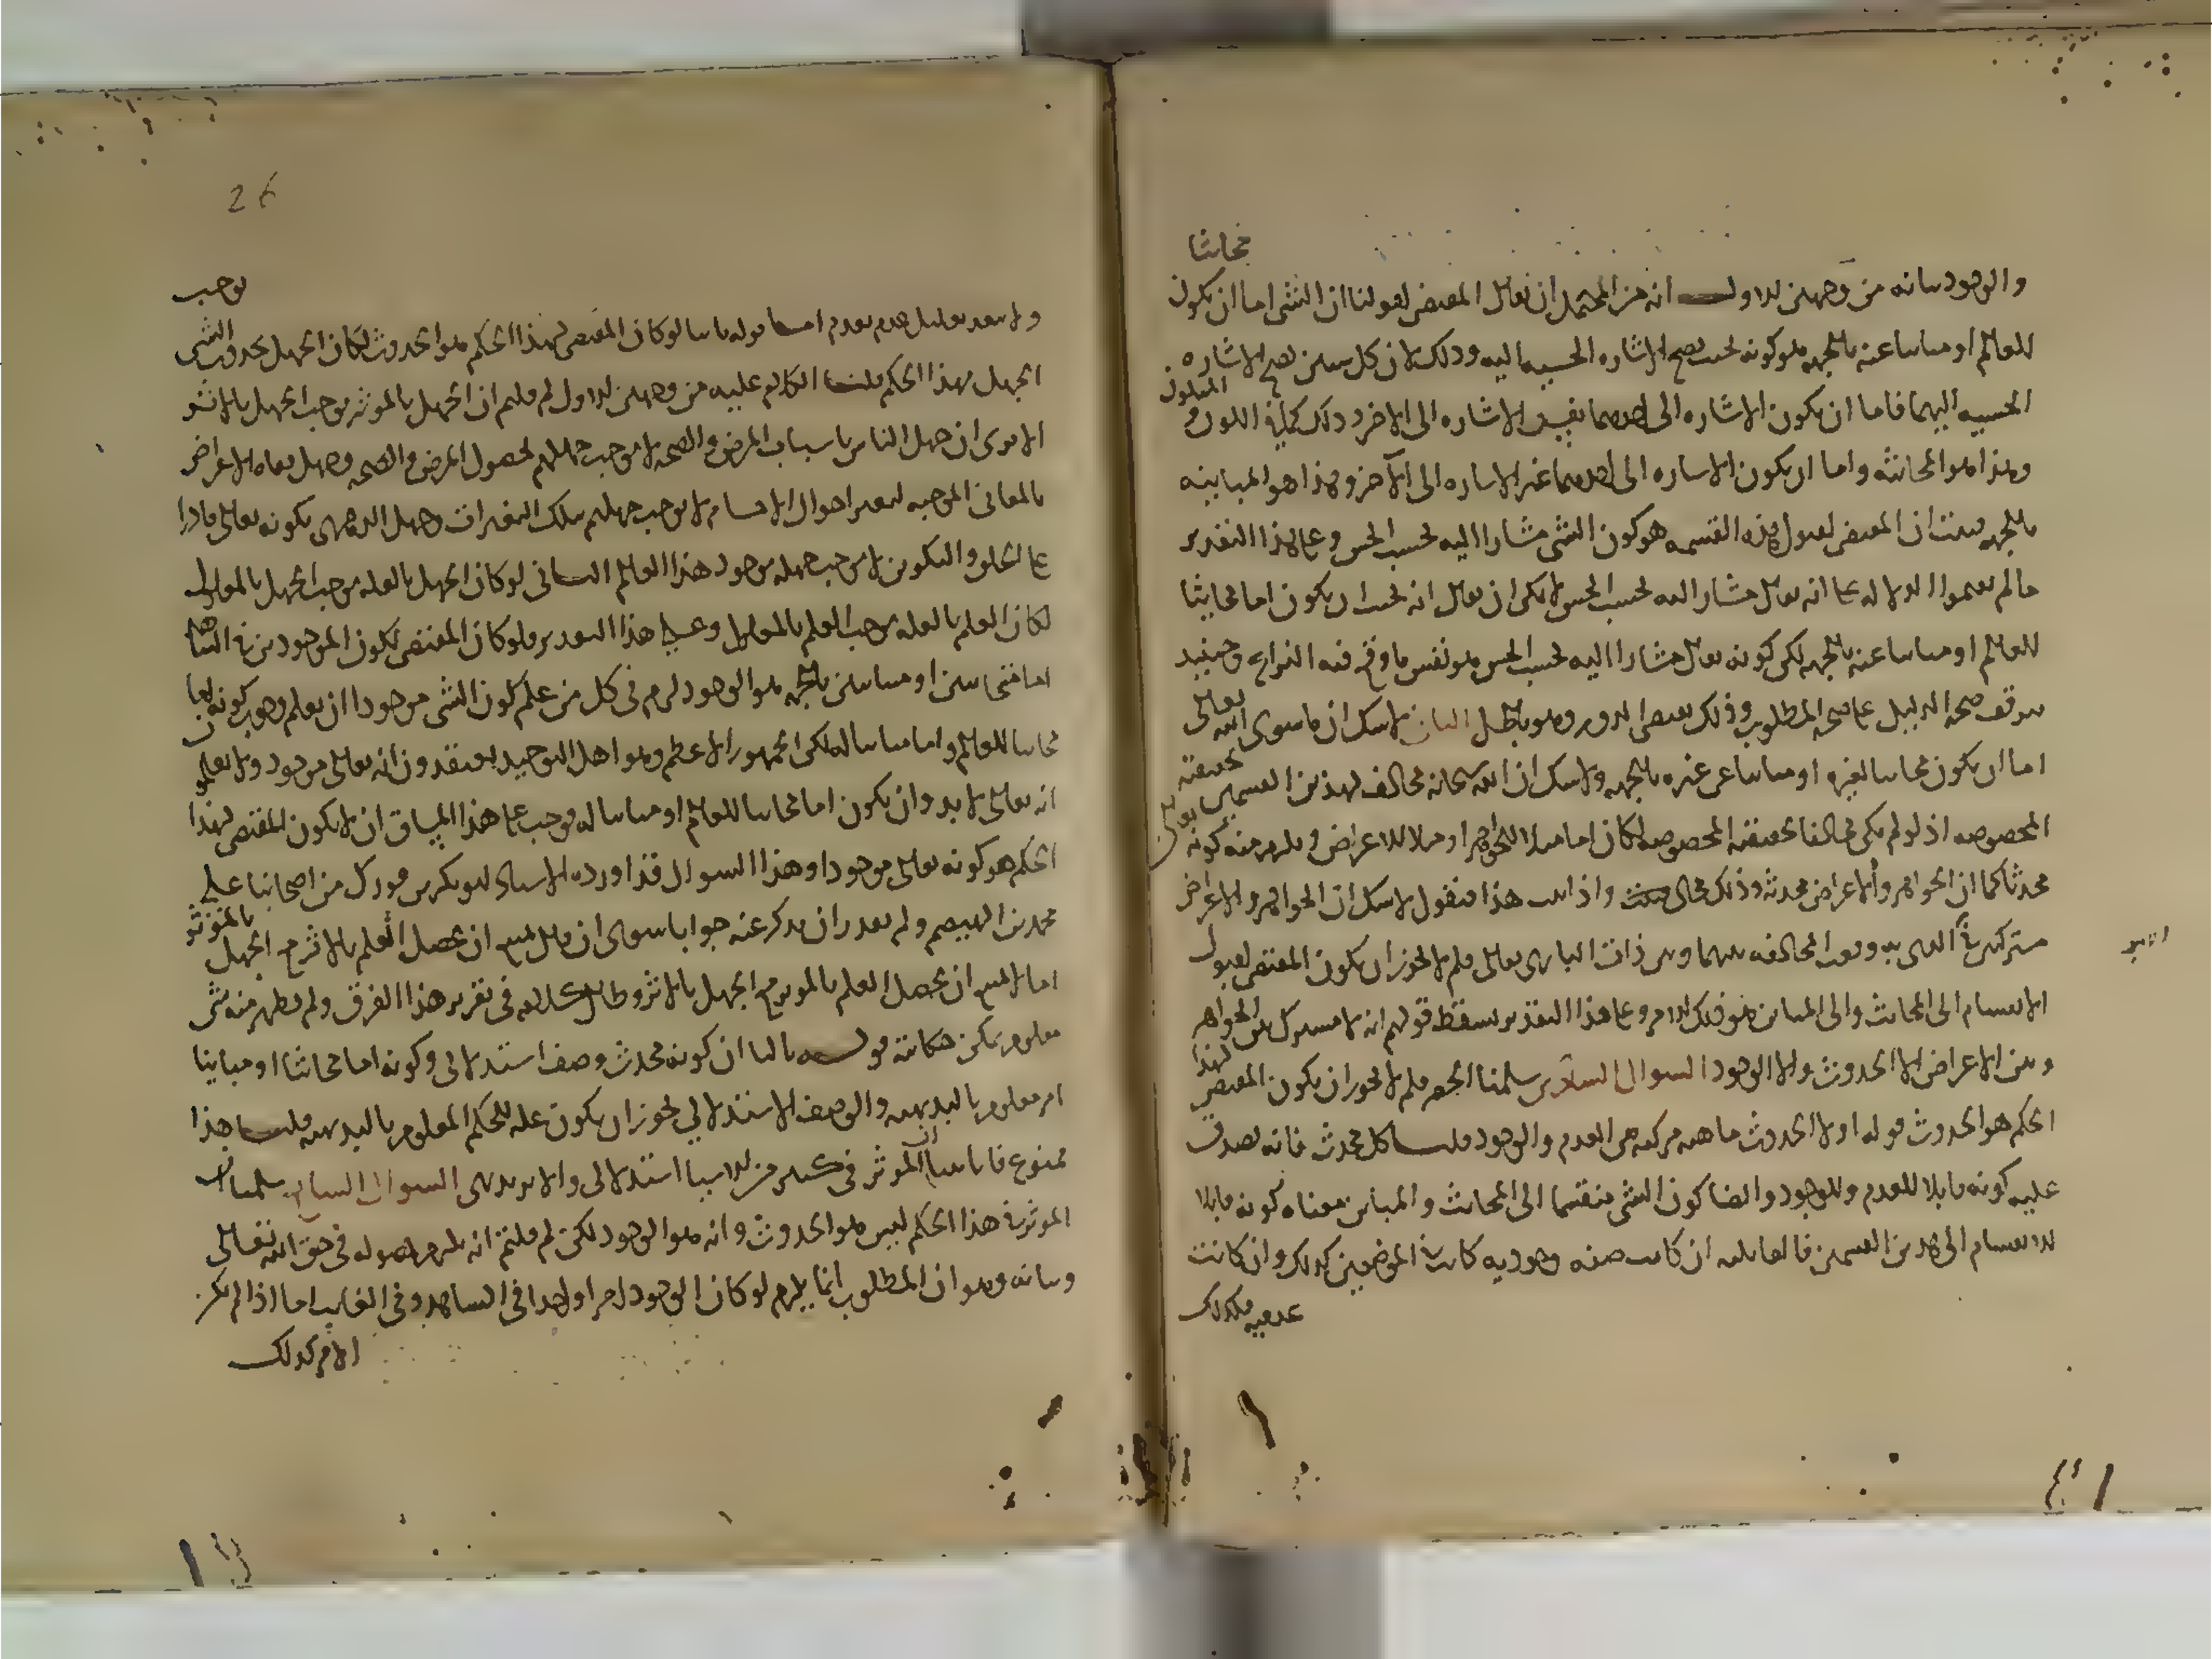 محايثا
والوجود بيانه من وجهين الاول انه من المحتمل ان يقال المقتضى لقولنا ان الشى اما ان يكون
للعالم او مباينا عنه بالجهه هو كونه بحيث يصح الاشاره الحسيه اليه وذلك لان كل شيئين يصح الاشاره
الحسيه اليهما فاما ان يكون الاشاره الى احدهما نفس الاشاره الى الاخر وذلك كما فى اللون و المتلون
وهذا هو المحايثه واما ان يكون الاشاره الى احدهما غير الاشاره الى الآخر وهذا هو المباينه
بالجهه فثبت ان المقتضى لقبول هذه القسمه هو كون الشى مشارا اليه بحسب الحس وعلى هذا التقدير
ما لم يقيموا الدلاله على انه تعالى مشار اليه بحسب الحس لا يمكن ان يقال انه يجب ان يكون اما محايثا
للعالم او مباينا عنه بالجهه لكن كونه تعالى مشارا اليه بحسب الحس هو نفس ما وقع فيه النزاع وحينئذ
يتوقف صحه الدليل على صحه المطلوب وذلك يفضى الى الدور وهو باطل الثانى لا شك ان ما سوى الله تعالى
اما ان يكون محايثا لغيره او مباينا عن غيره بالجهه ولا شك ان الله سبحانه مخالف لهذين القسمين بحقيقته
المخصوصه اذ لو لم يكن مخالفا بحقيقته المخصوصه لكان اما مثلا للجواهر او مثلا للاعراض ويلزم منه كونه تعالى
محدثا كما ان الجواهر والاعراض محدثه وذلك محال واذا ثبت هذا فنقول لا شك ان الجواهر والاعراض
مشتركين فى الامر الذى به وقعت المخالفه بينهما وبين ذات البارى تعالى فلم لا يجوز ان يكون المقتضى لقبول
الانقسام الى المحايث والى المباين هو ذلك الامر وعلى هذا التقدير يسقط قولهم انه لا مشترك بين الجواهر
وبين الاعراض الا الحدوث والا الوجود السوال السادس سلمنا الحصر فلم لا يجوز ان يكون المقتضى لهذا
الحكم هو الحدوث قوله اولا الحدوث ماهيه مركبه من العدم والوجود قلنا كل محدث فانه يصدق
عليه كونه قابلا للعدم وللوجود وايضا كون الشى منقسما الى المحايث والمباين معناه كونه قابلا
للانقسام الى هذين القسمين فالقابليه ان كانت صفه وجوديه كانت فى الموضعين كذلك وان كانت
عدميه فكذلك
26
ولا يبعد تعليل عدم بعدم اما قوله ثانيا لو كان المقتضى لهذا الحكم هو الحدوث لكان الجهل بحدوث الشى يوجب
الجهل بهذا الحكم قلنا الكلام عليه من وجهين الاول لم قلتم ان الجهل بالموثر يوجب الجهل بالاثر
الا ترى ان جهل الناس باسباب المرض والصحه لا يوجب جهلهم بحصول المرض والصحه وجهل نفاه الاعراض
بالمعانى الموجبه لتغير احوال الاجسام لا يوجب جهلهم بتلك التغيرات وجهل الدهرى بكونه تعالى قادرا
على الخلق والتكوين لا يوجب جهله بوجود هذا العالم الثانى لو كان الجهل بالعله يوجب الجهل بالمعلول
لكان العلم بالعله يوجب العلم بالمعلول وعلى هذا التقدير فلو كان المقتضى لكون الموجودين فى الشاهد
اما متحايثين او متباينين بالجهه هو الوجود لزم فى كل من علم كون الشى موجودا ان يعلم وجوب كونه اما
محايثا للعالم واما مباينا له لكن الجمهور الاعظم وهو اهل التوحيد يعتقدون انه تعالى موجود ولا يعلمون
انه تعالى لا بد وان يكون اما محايثا للعالم او مباينا له فوجب على هذا المساق ان لا يكون المقتضى لهذا
الحكم هو كونه تعالى موجودا وهذا السوال قد اورده الاستاد ابو بكر بن فورك من اصحابنا على
محمد بن الهيصم ولم يقدر ان يذكر عنه جوابا سوى ان قال يمتنع ان يحصل العلم بالاثر مع الجهل بالموثر
اما لا يمتنع ان يحصل العلم بالموثر مع الجهل بالاثر وطال كلامه فى تقرير هذا الفرق ولم يظهر منه شى
معلوم يمكن حكايته قوله ثالثا ان كونه محدث وصف استدلالى وكونه اما محايثا او مباينا
امر معلوم بالبديهه والوصف الاستدلالى لا يجوز ان يكون عله للحكم المعلوم بالبديهه قلنا هذا
ممنوع فانا بينا ان الموثر فى كثير من الاشيا استدلالى والاثر بديهى السوال السابع سلمنا ان
الموثر فى هذا الحكم ليس هو الحدوث وانه هو الوجود لكن لم قلتم انه يلزم حصوله فى حق الله تعالى
وبيانه وهو ان المطلوب انما يلزم لو كان الوجود امرا واحدا فى الشاهد وفى الغايب اما اذا لم يكن
الامر كذلك